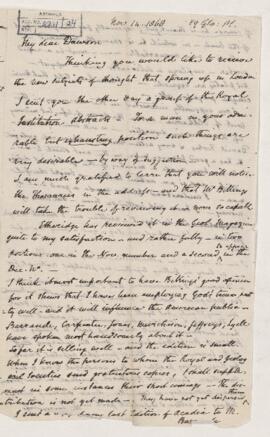 Nov 14. 1868
My dear Dawson
Thinking you would like to receive
the new subjects of thought that spring up in London
I sent you the other day a group of the Royal
Institution Abstracts To a man in your admi-
rable but exhausting position such things are
very desirable - by way of suggestion
I am much gratified to learn that you will notice
the Thesaurus in the address - and that Mr Billings
will take the trouble of reviewing
Etheridge has reviewed it in the Geol. Magazine
quite to my satisfaction - and rather fully - in two
portions. one in the Nov. number and a second, in the
Dec. No.
I think it most important to have Billings' good opinion
for it shows that I have employed God's time pret-
ty well - and it will influence the American public -
Barrande, Carpenter, Jones, Murchison, Jeffreys, Lyell
have spoken most handsomely about it -
So far it is selling well - and the edition is small
When I know the persons to whom the Royal and Geolog
ical Societies send gratuitous copies, I shall supple-
ment in some instances their short comings - The dis-
tribution is not yet made -
I sent a last Edition of Acadia to M.
Bar